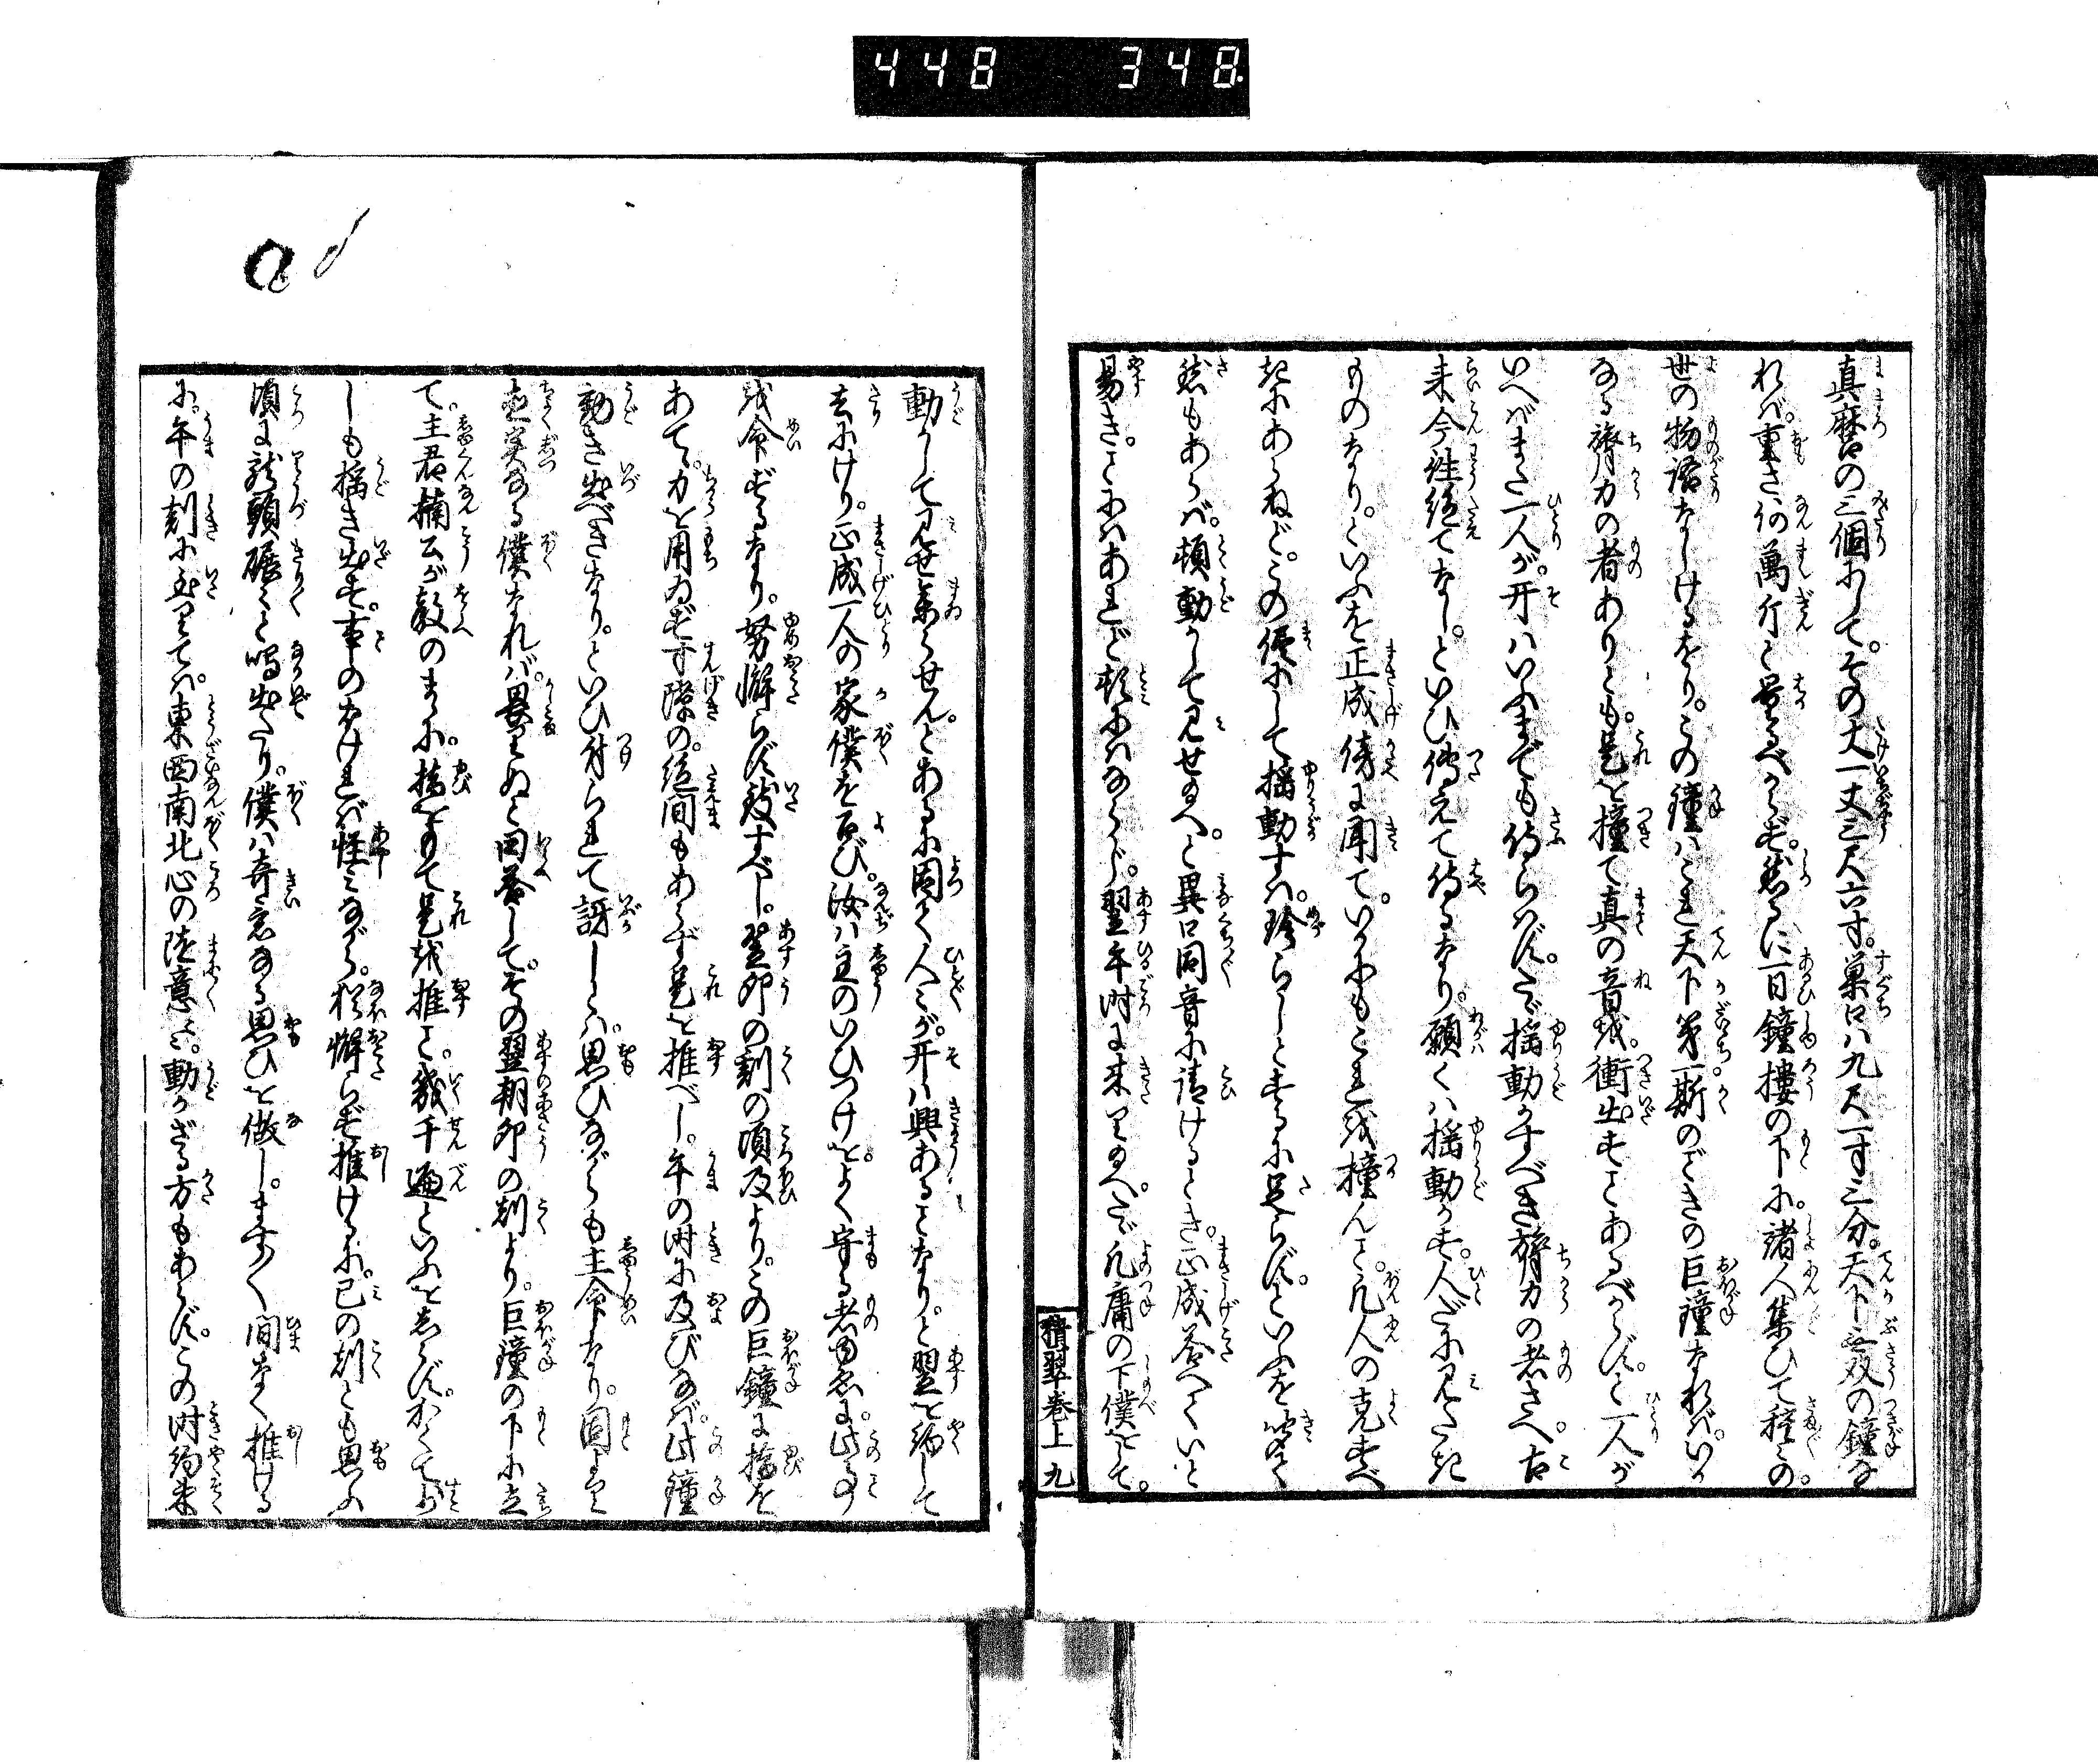 448 348
真麿の三個にして。その丈一丈三尺六寸。巣口ハ九尺一寸三分。天下無双の鐘な
れバ。重さ何萬斤と量るべからず。然るに一日鐘樓の下に。諸人集ひて種々の。
世の物語なしけるをり。この鐘ハこれ天下第一。斯のごときの巨鐘なれバ。いか
なる膂力の者ありとも。是を撞て真の音を。衝出すことあるべからず。と一人が
いへバまた一人が。开ハいふまでも侍らはず。たゞ揺動かすべき膂力の者さへ。古
来今往絶てなし。といひ傳えて侍るなり。願くハ揺動かす。人だに見たき
ものなり。といふを正成傍に聞て。いかにもこれを撞んこと。凡人の克すべ
きにあらねど。この儘にして揺動すハ。珍らしとするに足らず。といふを皆々聞
然もあらバ。頓動かして見せ給へ。と異口同音に請けるとき。正成答へていと
易き。ことにハあれど頓にハならじ。翌午時に来り給へ。たゞ凡庸の下僕をして。
積翠巻上 九
動かして見せ参らせん。とあるに固く人々が。开ハ興あることなり。と翌を約して
去にけり。正成一人の家僕を召び。汝ハ主のいひつけを。よく守る者ゆゑに。此事
を命ずるなり。努懈らず致すべし。翌卯の刻の頃及より。この巨鐘に指を
あて。力を用ゐず寸隙の。絶間もあらず是を推べし。午の時に及びなバ。此鐘
動き出べきなり。といひ付られて訝しくハ。思ひながらも主命なり。固より
直実なる僕なれバ。畏りぬと回答して。その翌朝卯の刻より。巨鐘の下に立
て。主君楠公が教のまゝに。指をもて是を推こと。幾千遍といふをしらず。かくてす
しも揺き出ず。事のなけれバ怪みながら。猶懈らず推けるに。巳の刻とも思ふ
頃に龍頭碾々と鳴出たり。僕ハ奇意なる思ひを做し。ますます間なく推ける
に。午の刻に至りてハ。東西南北心の随意に。動かざる方もあらず。この時約束